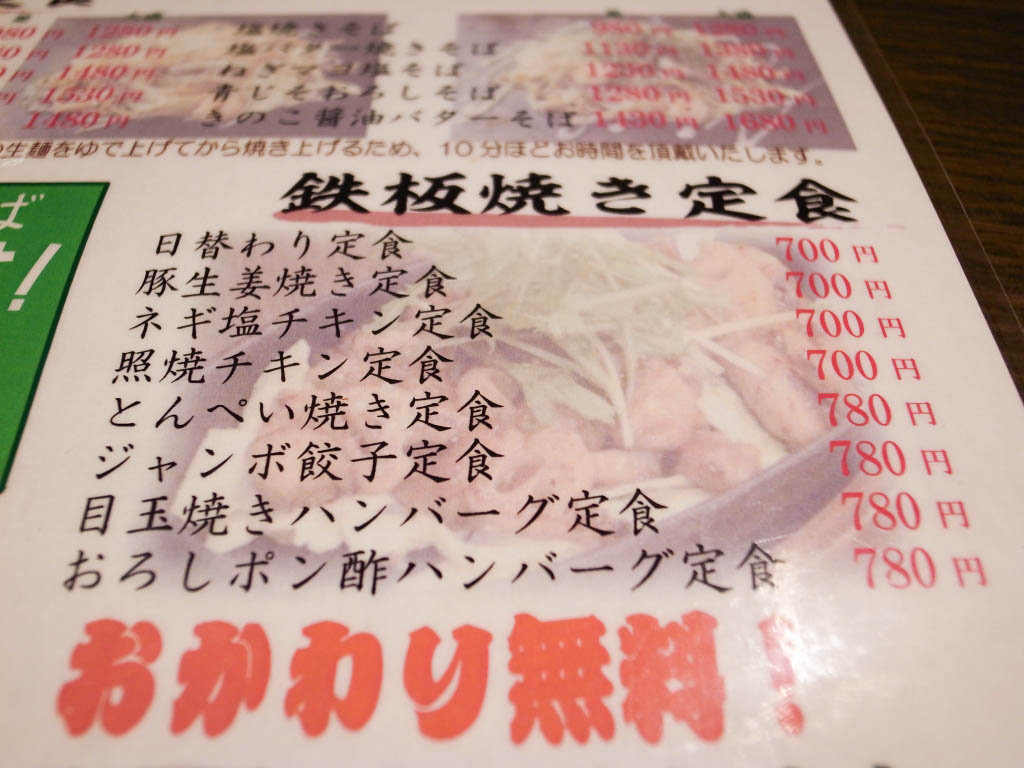 1280円 塩焼きそば 980円 1280円
1280円 塩バター焼きそば 1130円
1480円 ねぎマヨ塩そば 1230円 1480円
1530円 青じそおろしそば 1280円 1530円
1480円 きのこ醤油バターそば 1430円 1680円
生麺をゆで上げてから焼き上げるため、10分ほどお時間を頂戴いたします。
ば
!
鉄板焼き定食
日替わり定食 700円
豚生姜焼き定食 700円
ネギ塩チキン定食 700円
照焼チキン定食 700円
とんぺい焼き定食 780円
ジャンボ餃子定食 780円
目玉焼きハンバーグ定食 780円
おろしポン酢ハンバーグ定食 780円
おかわり無料!